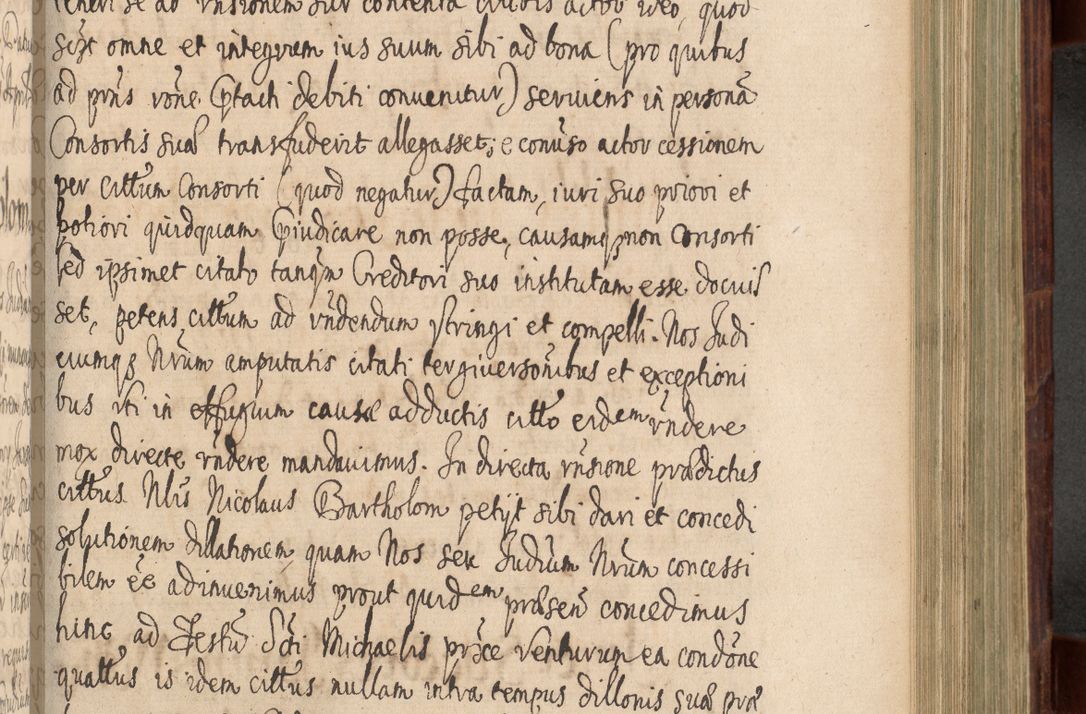 teneri se ad rnsionem sui contenta citatis actor ideo, quod
scizt omne et integrum ius suum sibi ad bona (pro quibus
ad prñs rõne ptacti debiti convenitur) serviens in personã
Consortis suæ transfuderit allegasset; e conṽso actor cessionem
per cittum Consorti (quod negatur) factam, iuri suo priori et
potiori quidquam pjudicare non posse, causamq; non Consorti
sed ipsimet citato tanqm Creditori suo institutam esse docuis
set, petens cittum ad rñdendum stringi et compelli. Nos Judi
ciumq; Nrum amputatis citati tergiversõnibus et exceptioni
bus iti in effugium causæ adductis citto eidem rñdere
mox directe rñdere mandavimus. In directa rñsione prædictus
cittus Nlis Nicolaus Bartholom petijt sibi dari et concedi
solutionem dillationem, quam Nos seu Judium Nrum concessi
bilem eẽ adinvenimus prout quidem præsent concedimus
hinc ad Festũ Scti Michaelis prõce venturum ea condõne
quattus is idem cittus nullam intra tempus dillonis suæ præ